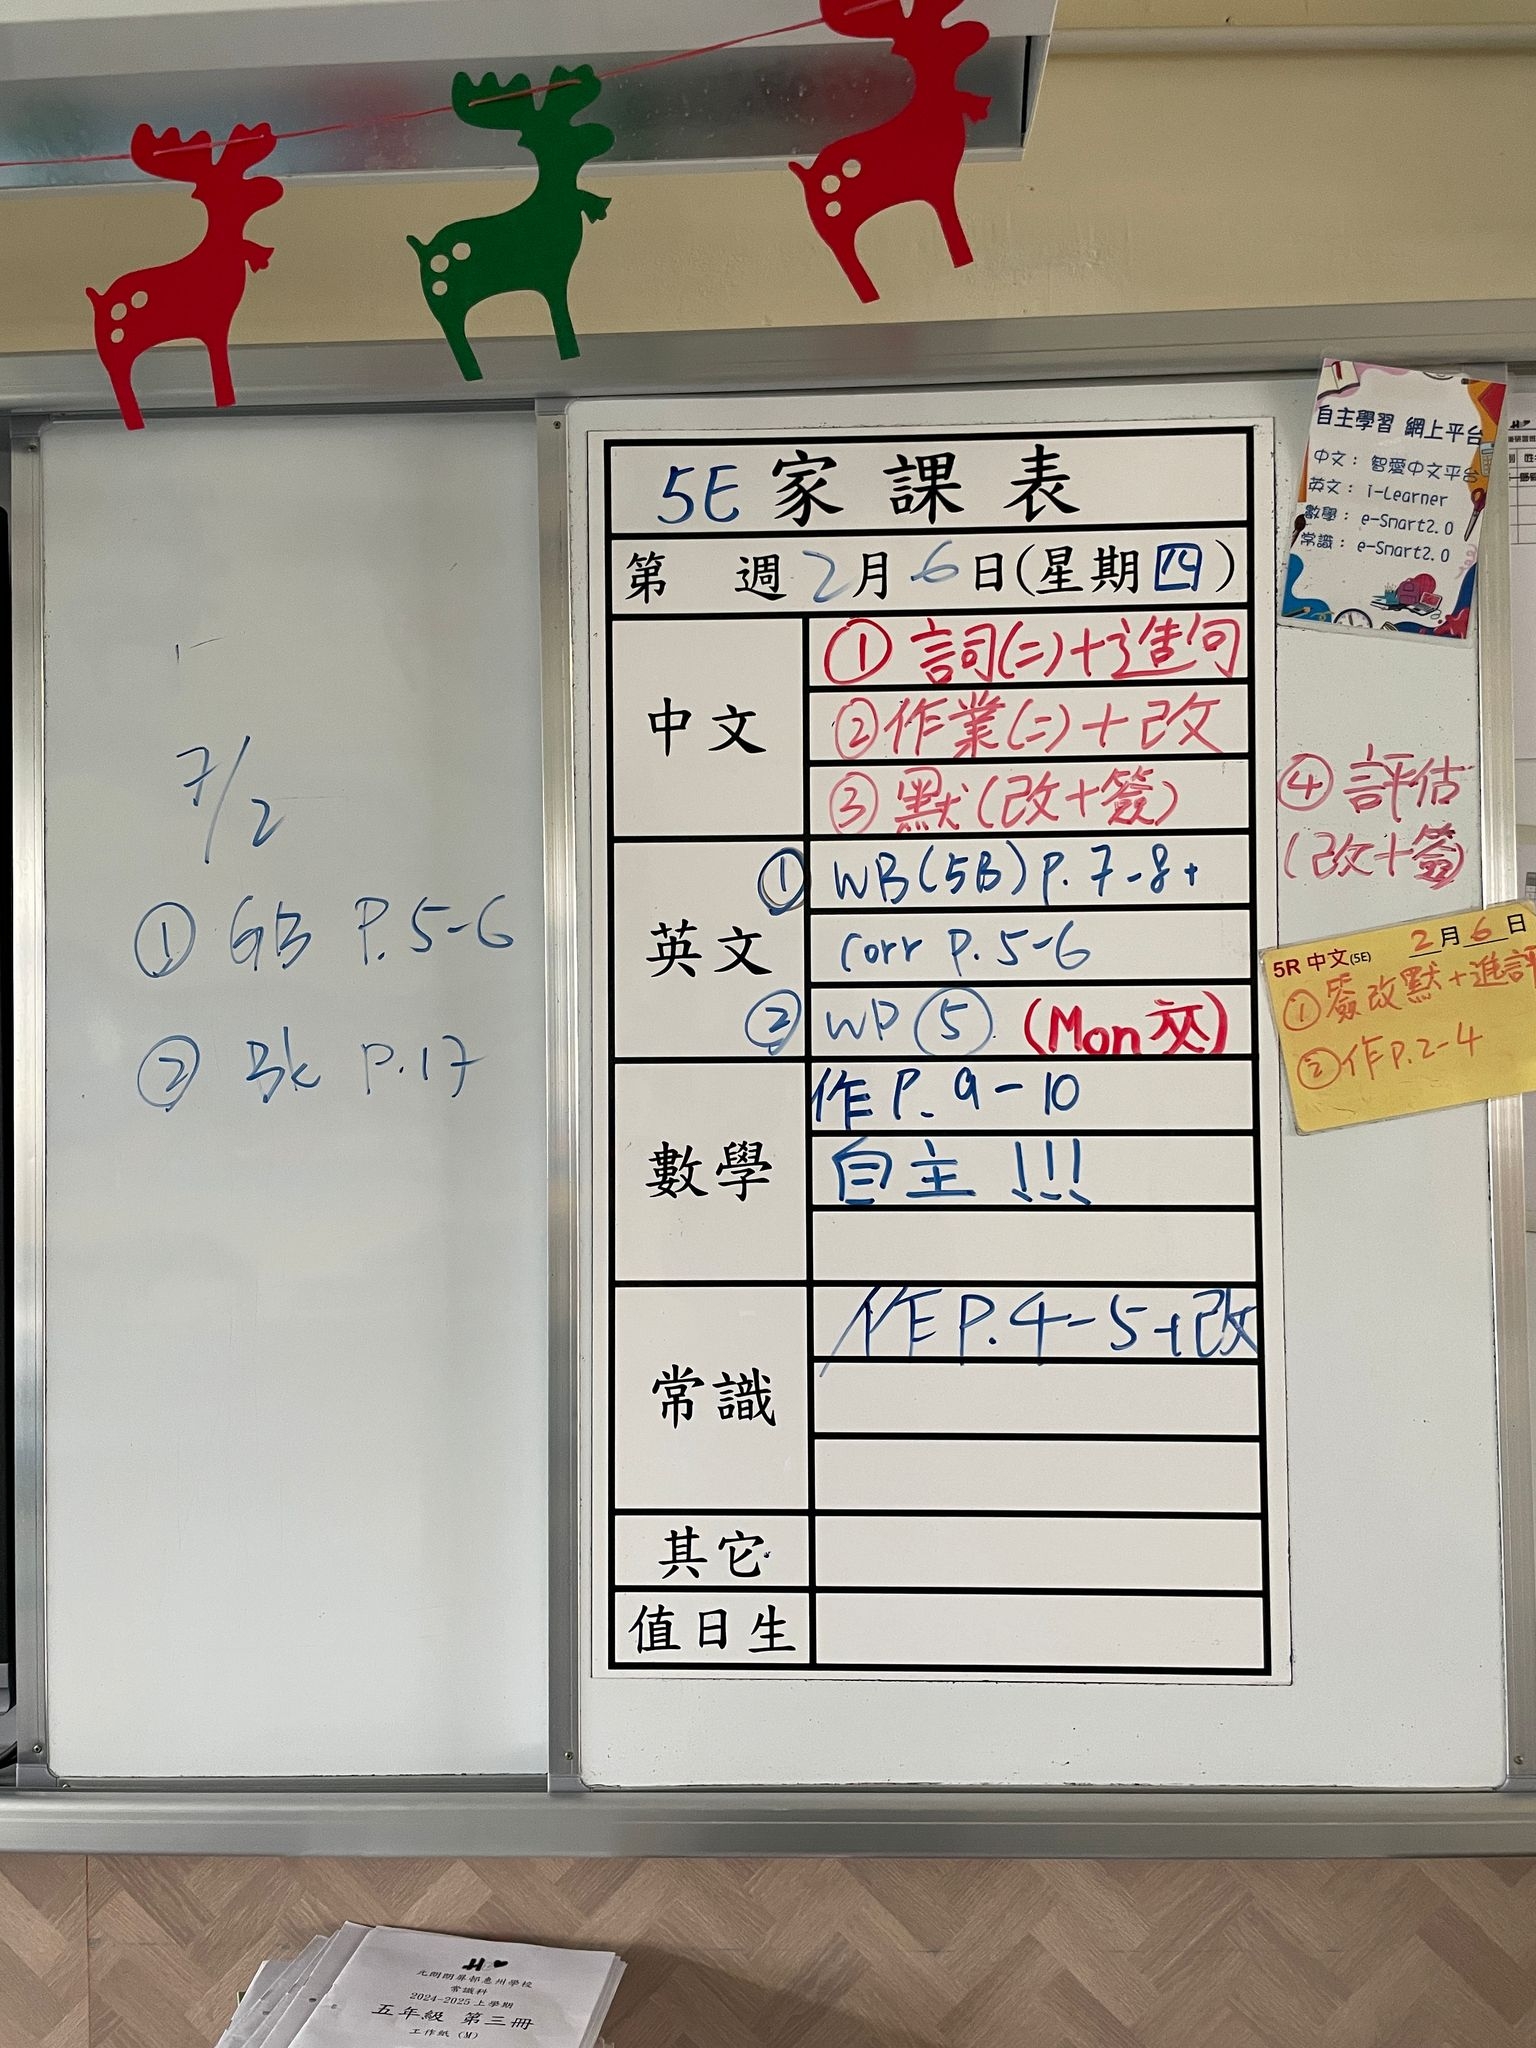 5E 家課表
第 週 2月6日(星期四)
中文
① 詞(二)+造句
② 作業(二)+改
③ 默(改+簽)
④ 評估
(改+簽)
英文
① WB(5B) P.7-8+
corr P.5-6
② WP ⑤ (Mon 交)
數學
作 P.9-10
自主 !!!
常識
作 P.4-5+改
其它
值日生
7/2
① GB P.5-6
② Bk P.17
自主學習 網上平台
中文：智愛中文平台
英文：i-Learner
數學：e-Smart2.0
常識：e-Smart2.0
5R 中文(5E) 2月6日
① 簽改默+進評
② 作P.2-4
元朗朗屏邨惠州學校
常識科
2024-2025上學期
五年級 第三冊
工作紙 (M)